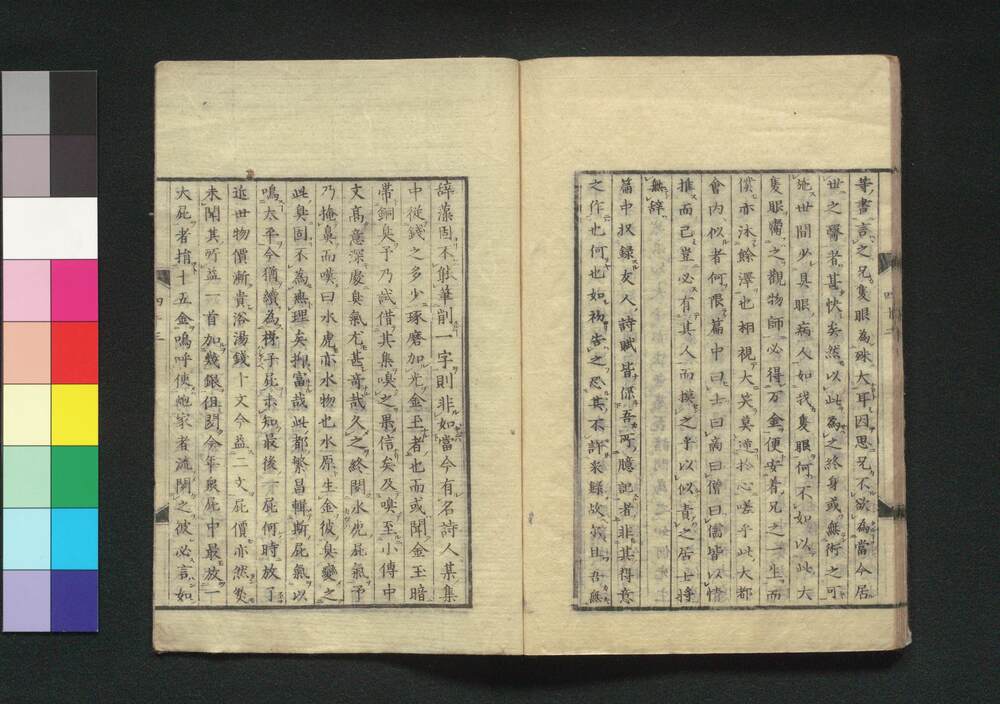 等書言之兄隻眼為殊大耳因思兄不欲為當今居
世之醫者甚快矣然以此為之終身或無術之可
施世間少具眼病人如我隻眼何不如以此大
隻眼嘱之觀物師必得万金便安着兄之一生而
僕亦沐餘澤也相視大笑莫逆於心嗟乎此大都
會内似者何限篇中曰士曰商曰僧曰儒皆以情
推而已豈必有其人而摸之乎以似責之居士将
無辞
篇中収録友人詩賦皆係吾所臆記者非其得意
之作也何也如初告之恐其不許来録故尓且吾無
辞藻固不能華削一字則非如當今有名詩人某集
中従錢之多少琢磨加光金至者也而或聞金玉暗
帶銅臭予乃試借其集嗅之果信矣及嗅至小傳中
文高意深處臭氣尤甚奇哉久之終聞水虎屁氣予
乃掩鼻而嘆曰水虎亦水物也水原生金彼臭變之
此臭固不為無理矣抑富哉此都繁昌輯斯屁氣以
鳴太平今猶續為梓予屁未知最後一屁何時放了
近世物價漸貴浴湯錢十文今益二文屁價亦然矣
未聞其所益一首加幾銀但聞今年屁中最放一
大屁者捐十五金嗚呼使家者流聞之彼必言如
四十三